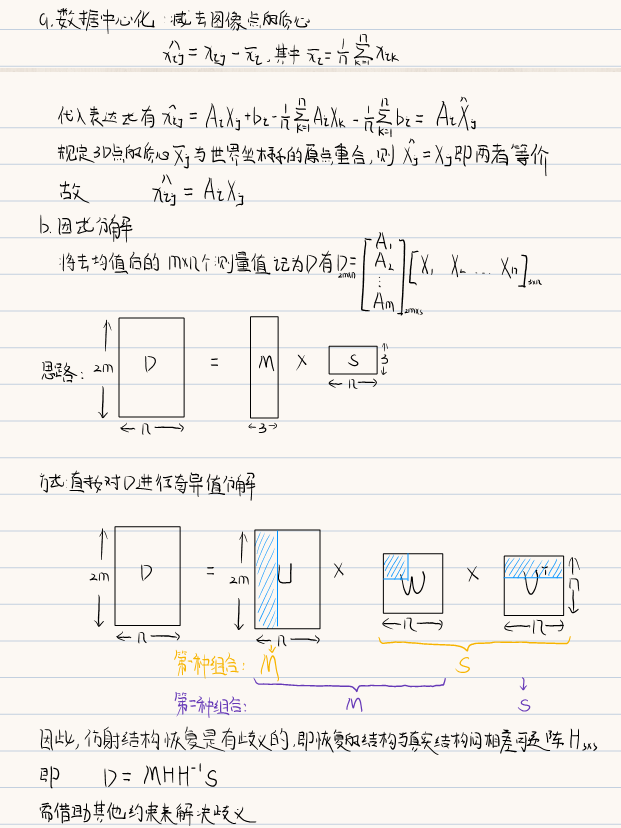 a.数据中心化:减去图像点的质心
x̂ij = xij - x̄i, 其中 x̄i = 1/n Σ(k=1→n) xik
代入表达式有 x̂ij = AiXj + bi - 1/n Σ(k=1→n) AiXk - 1/n Σ(k=1→n) bi = AiX̂j
规定3D点的质心X̄j与世界坐标系的原点重合,则 X̂j = Xj 即两者等价
故 x̂ij = AiXj
b.因式分解
将去均值后的 m×n个测量值记为D有 D2m×n = [A1 A2 ⋮ Am]2m×3 [X1 X2 ... Xn]3×n
思路: 2m D = M × S 3
n 3 n
方式:直接对D进行奇异值分解
2m D = 2m U × W × V^T n
n n n n
第一种组合: M S
第二种组合: M S
因此,仿射结构恢复是有歧义的,即恢复的结构与真实结构间相差可逆阵 H3×3
即 D = MHH⁻¹S
需借助其他约束来解决歧义